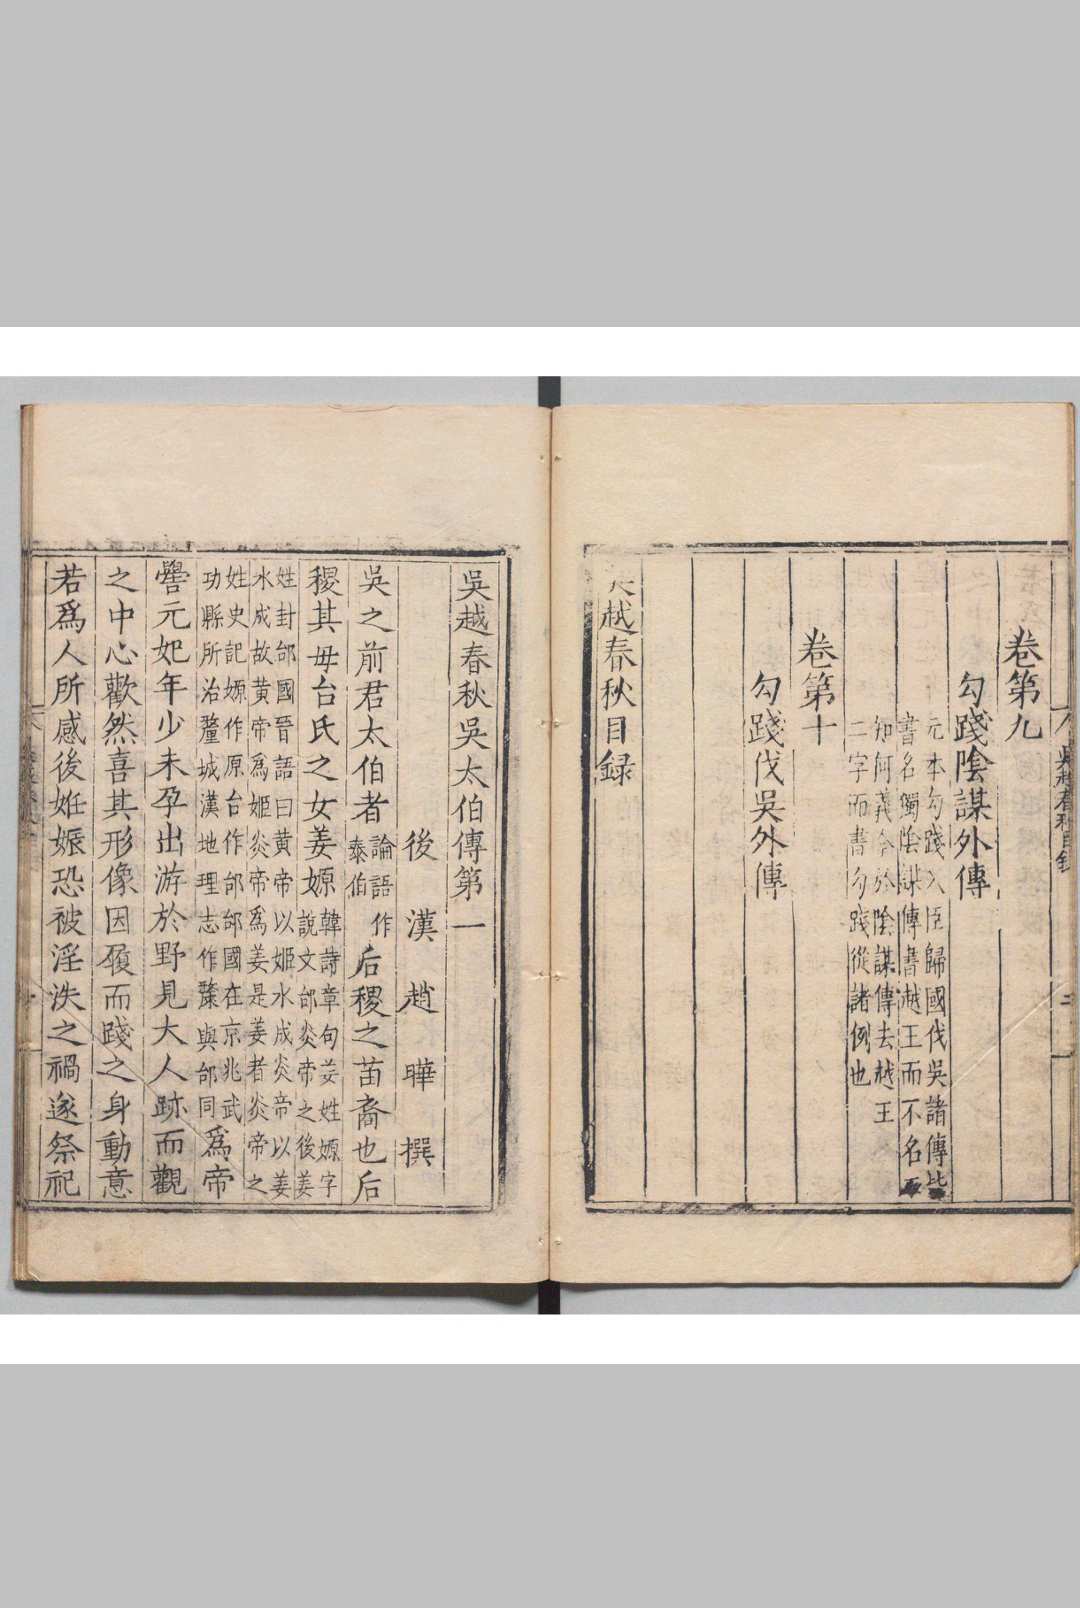 卷第九
勾踐陰謀外傳
元本勾踐入臣歸國伐吳諸傳此
書名獨陰謀傳書越王而不名不
知何義今於陰謀傳去越王
二字而書勾踐從諸例也
卷第十
勾踐伐吳外傳
越春秋目録
吳越春秋吳太伯傳第一
後漢趙曄撰
吳之前君太伯者論語作泰伯后稷之苗裔也后
稷其母台氏之女姜嫄韓詩章句姜姓嫄字說文邰炎帝之後姜
姓封邰國晉語曰黄帝以姬水成炎帝以姜
水成故黄帝爲姬炎帝爲姜是姜者炎帝之
姓史記嫄作原台作邰邰國在京兆武
功縣所治釐城漢地理志作斄與邰同爲帝
嚳元妃年少未孕出游於野見大人跡而觀
之中心歡然喜其形像因履而踐之身動意
若爲人所感後姙娠恐被淫泆之禍遂祭祀